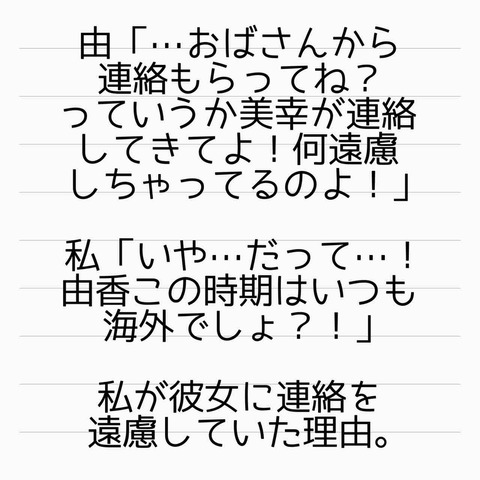 由「…おばさんから
連絡もらってね？
っていうか美幸が連絡
してきてよ！何遠慮
しちゃってるのよ！」
私「いや…だって…！
由香この時期はいつも
海外でしょ？！」
私が彼女に連絡を
遠慮していた理由。